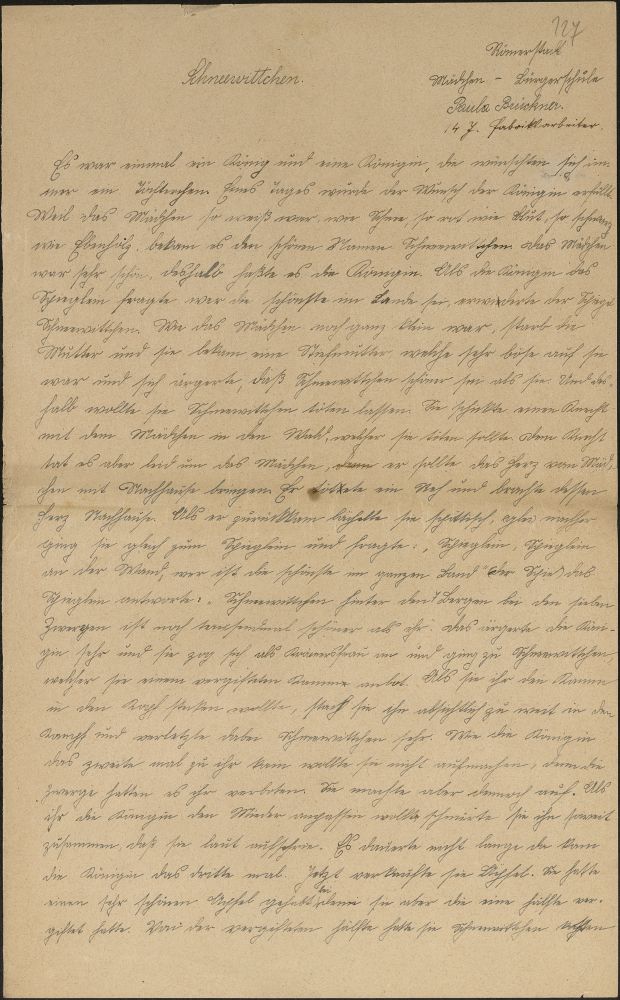 127
Römerstadt
Schneewittchen.
Mädchen - Bürgerschule
Paula Brückner.
14 J. Fabrikarbeiter.
Es war einmal ein König und eine Königin, die wünschten sich im-
mer ein Töchterchen. Eines Tages wurde der Wunsch der Königin erfüllt.
Weil das Mädchen so weiß war, wie Schnee, so rot wie Blut, so schwarz
wie Ebenholz, bekam es den schönen Namen Schneewittchen. Das Mädchen
war sehr schön, deshalb haßte es die Königin. Als die Königin das
Spieglein fragte wer die schönste im Lande sei, erwiederte der Spiegel
Schneewittchen. Wie das Mädchen noch ganz klein war, starb die
Mutter und sie bekam eine Stiefmutter, welche sehr böse auf sie
war und sich ärgerte, daß Schneewittchen schöner sei als sie. Und des-
halb wollte sie Schneewittchen töten lassen. Sie schickte einen Knecht
mit dem Mädchen in den Wald, welcher sie töten sollte. Dem Knecht
tat es aber leid um das Mädchen, denn er sollte das Herz vom Mäd-
chen mit Nachhause bringen. Er tötete ein Reh und brachte dessen
Herz Nachhause. Als er zurückkam lächelte sie spöttisch, nachher
ging sie gleich zum Spieglein und fragte: „Spieglein, Spieglein
an der Wand, wer ist die schönste im ganzen Land" das
Spieglein antworte: „Schneewittchen hinter den Bergen bei den sieben
Zwergen ist noch tausendmal schöner als ihr. Das ärgerte die Köni-
gin sehr und sie zog sich als Krämersfrau an und ging zu Schneewittchen,
welcher sie einen vergifteten Kamme anbot. Als sie ihr den Kamm
in den Kopf stecken wollte, stach sie ihr absichtlich zu weit in den
Kampf und verletzte dabei Schneewittchen sehr. Wie die Königin
das zweite mal zu ihr kam wollte sie nicht aufmachen, denn die
Zwerge hatten es ihr verboten. Sie machte aber dennoch auf. Als
ihr die Königin den Mieder anpassen wollte schnürte sie ihn soweit
zusammen, daß sie laut aufschrie. Es dauerte nicht lange da kam
die Königin das dritte mal. Jetzt verkaufte sie Äpfel. Sie hatte
einen sehr schönen Apfel gehabt, denn sie aber die eine hälfte ver-
giftet hatte. Von der vergifteten hälfte hatte sie Schneewittchen kosten